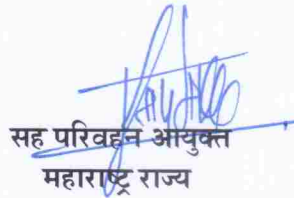 सह परिवहन आयुक्त
महाराष्ट्र राज्य